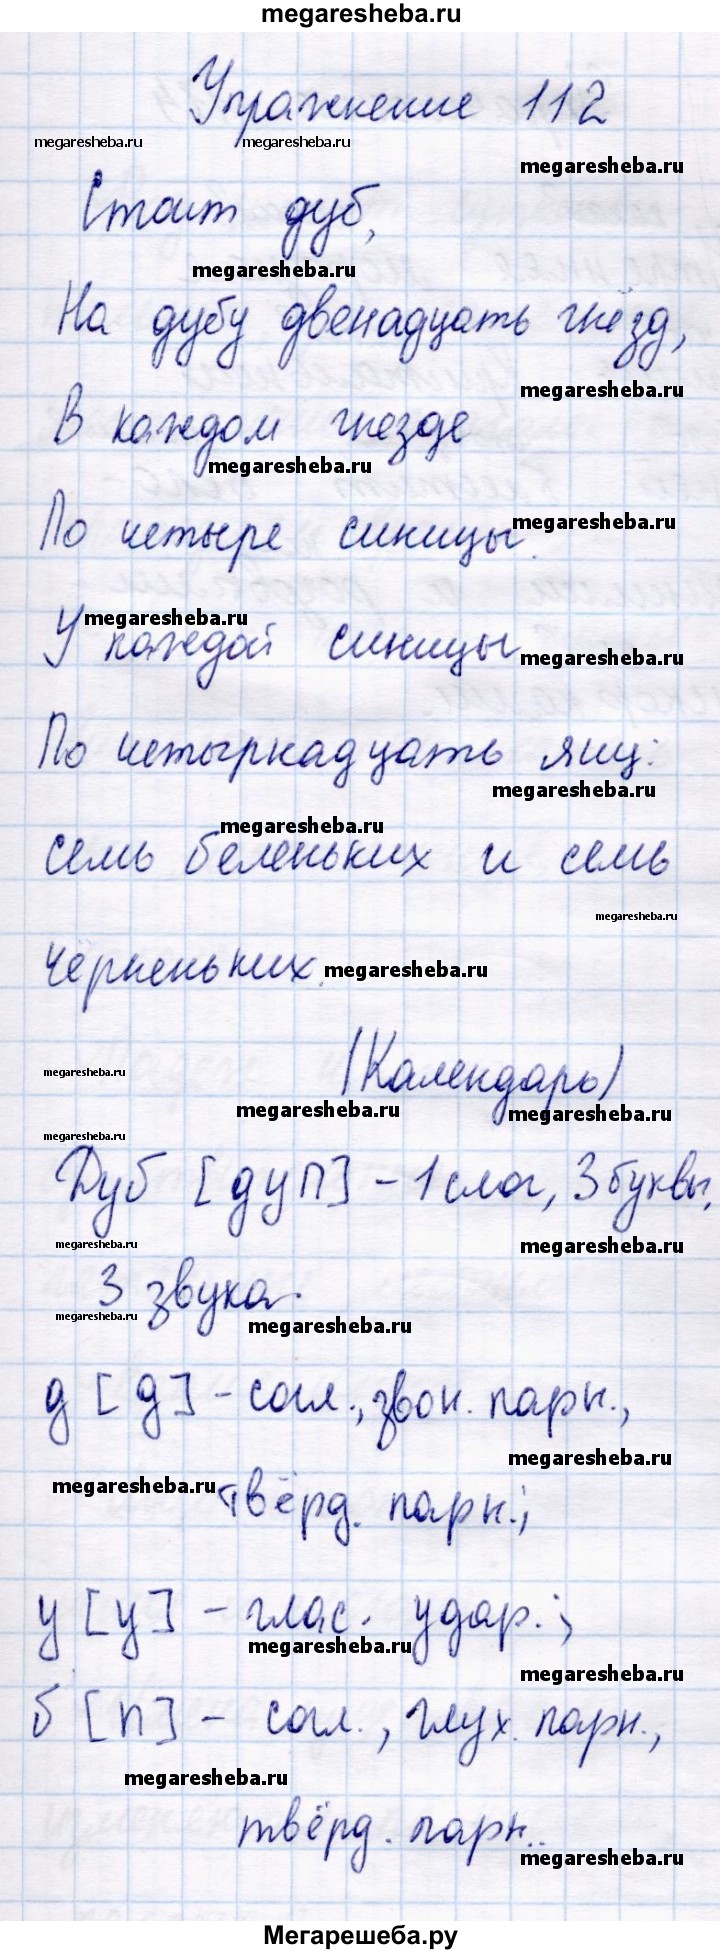 megaresheba.ru
Упражнение 112
megaresheba.ru megaresheba.ru megaresheba.ru
Стоит дуб,
megaresheba.ru
На дубу двенадцать гнёзд,
megaresheba.ru
В каждом гнезде
megaresheba.ru
По четыре синицы.
megaresheba.ru
megaresheba.ru
У каждой синицы
megaresheba.ru
По четырнадцать яиц:
megaresheba.ru
megaresheba.ru
семь беленьких и семь
megaresheba.ru
чёрненьких.
megaresheba.ru
(Календарь)
megaresheba.ru
megaresheba.ru megaresheba.ru
megaresheba.ru
Дуб [дуп] - 1 слог, 3 буквы,
megaresheba.ru megaresheba.ru
3 звука.
megaresheba.ru megaresheba.ru
д [д] - согл., звон. парн.,
megaresheba.ru
megaresheba.ru
твёрд. парн.;
у [у] - глас. удар.;
megaresheba.ru
megaresheba.ru
б [п] - согл., глух. парн.,
megaresheba.ru
твёрд. парн..
megaresheba.ru
Мегарешеба.ру